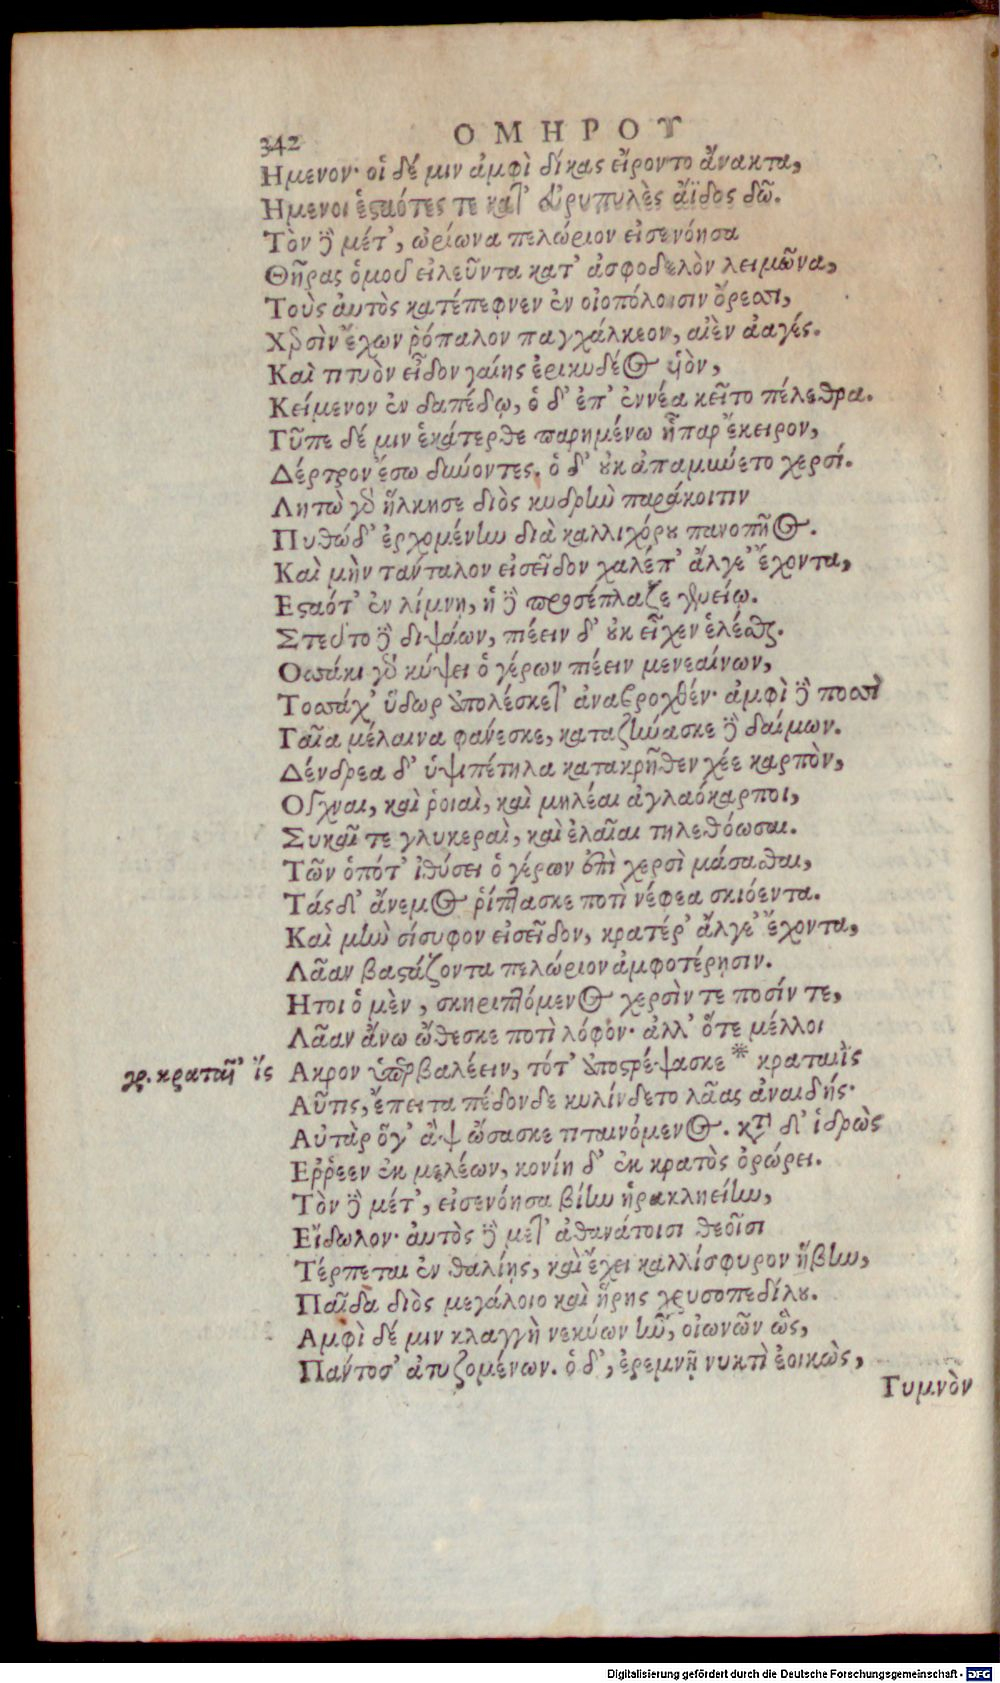 342
ΟΜΗΡΟΥ
Ημενον· οἱ δέ μιν ἀμφὶ δίκας εἴροντο ἄνακτα,
Ημενοι ἑσταότες τε κατ' εὐρυπυλὲς ἄϊδος δῶ.
Τὸν δὲ μέτ', ὠρίωνα πελώριον εἰσενόησα
Θῆρας ὁμοῦ εἰλεῦντα κατ' ἀσφοδελὸν λειμῶνα,
Τοὺς ἀυτὸς κατέπεφνεν ἐν οἰοπόλοισιν ὄρεσσι,
Χερσὶν ἔχων ῥόπαλον παγχάλκεον, αἰὲν ἀαγές.
Καὶ τιτυὸν εἶδον γαίης ἐρικυδέος υἱὸν,
Κείμενον ἐν δαπέδῳ, ὁ δ' ἐπ' ἐννέα κεῖτο πέλεθρα.
Γῦπε δέ μιν ἑκάτερθε παρημένω ἧπαρ ἔκειρον,
Δέρτρον ἔσω δύνοντες. ὁ δ' οὐκ ἀπαμύνετο χερσί.
Λητὼ γὰρ ἥλκησε διὸς κυδρὴν παράκοιτιν
Πυθώδ' ἐρχομένην διὰ καλλιχόρου πανοπῆος.
Καὶ μὴν τάνταλον εἰσεῖδον χαλέπ' ἄλγε' ἔχοντα,
Εσταότ' ἐν λίμνῃ, ἡ δὲ προσέπλαζε γενείῳ.
Στεῦτο δὲ διψάων, πιέειν δ' οὐκ εἶχεν ἑλέσθαι.
Οσσάκι γὰρ κύψει ὁ γέρων πιέειν μενεαίνων,
Τοσσάχ' ὕδωρ ὑπολέσκετ' ἀναβροχθέν· ἀμφὶ δὲ ποσσὶ
Γαῖα μέλαινα φάνεσκε, καταζήνασκε δὲ δαίμων.
Δένδρεα δ' ὑψιπέτηλα κατακρῆθεν χέε καρπὸν,
Οχναι, καὶ ῥοιαὶ, καὶ μηλέαι ἀγλαόκαρποι,
Συκαῖ τε γλυκεραὶ, καὶ ἐλαῖαι τηλεθόωσαι.
Τῶν ὁπότ' ἰθύσει ὁ γέρων ἐπὶ χερσὶ μάσασθαι,
Τάς δ' ἄνεμος ῥίπτασκε ποτὶ νέφεα σκιόεντα.
Καὶ μὴν σίσυφον εἰσεῖδον, κρατέρ' ἄλγε' ἔχοντα,
Λᾶαν βαστάζοντα πελώριον ἀμφοτέρῃσιν.
Ητοι ὁ μὲν, σκηριπτόμενος χερσὶν τε ποσίν τε,
Λᾶαν ἄνω ὤθεσκε ποτὶ λόφον· ἀλλ' ὅτε μέλλοι
γρ. κραταῖ' ἴς
Ακρον ὑπερβαλέειν, τότ' ὑποστρέψασκε * κραταιῒς
Αὖτις, ἔπειτα πέδονδε κυλίνδετο λᾶας ἀναιδής·
Αὐτὰρ ὅγ' ἂψ ὤσασκε τιταινόμενος. κατὰ δ' ἱδρὼς
Ερῥεεν ἐκ μελέων, κονίη δ' ἐκ κρατὸς ὀρώρει.
Τὸν δὲ μέτ', εἰσενόησα βίην ἡρακληείην,
Εἴδωλον· ἀυτὸς δὲ μετ' ἀθανάτοισι θεοῖσι
Τέρπεται ἐν θαλίῃς, καὶ ἔχει καλλίσφυρον ἥβην,
Παῖδα διὸς μεγάλοιο καὶ ἥρης χρυσοπεδίλου.
Αμφὶ δέ μιν κλαγγὴ νεκύων ἦν, οἰωνῶν ὣς,
Πάντοσ' ἀτυζομένων. ὁ δ', ἐρεμνῇ νυκτὶ ἐοικὼς,
Γυμνὸν
Digitalisierung gefördert durch die Deutsche Forschungsgemeinschaft - DFG